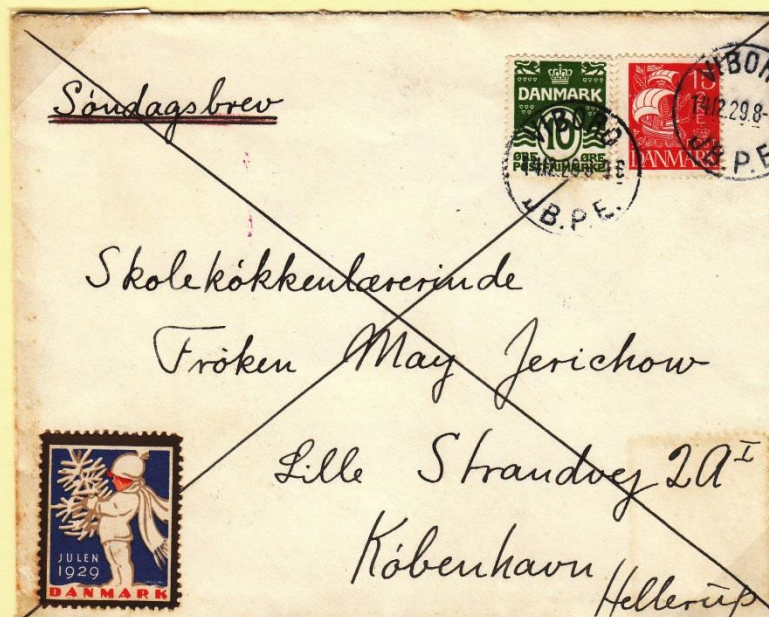 Søndagsbrev
DANMARK
10
ØRE ØRE
POSTFRIMÆRKE
15
DANMARK
VIBORG
14.12.29.8-9 E
JB.P.E.
VIBOR
14.12.29.8-
JB.P.E
Skolekökkenlærerinde
Fröken May Jerichow
Lille Strandvej 2A I
København
Hellerup
JULEN
1929
DANMARK